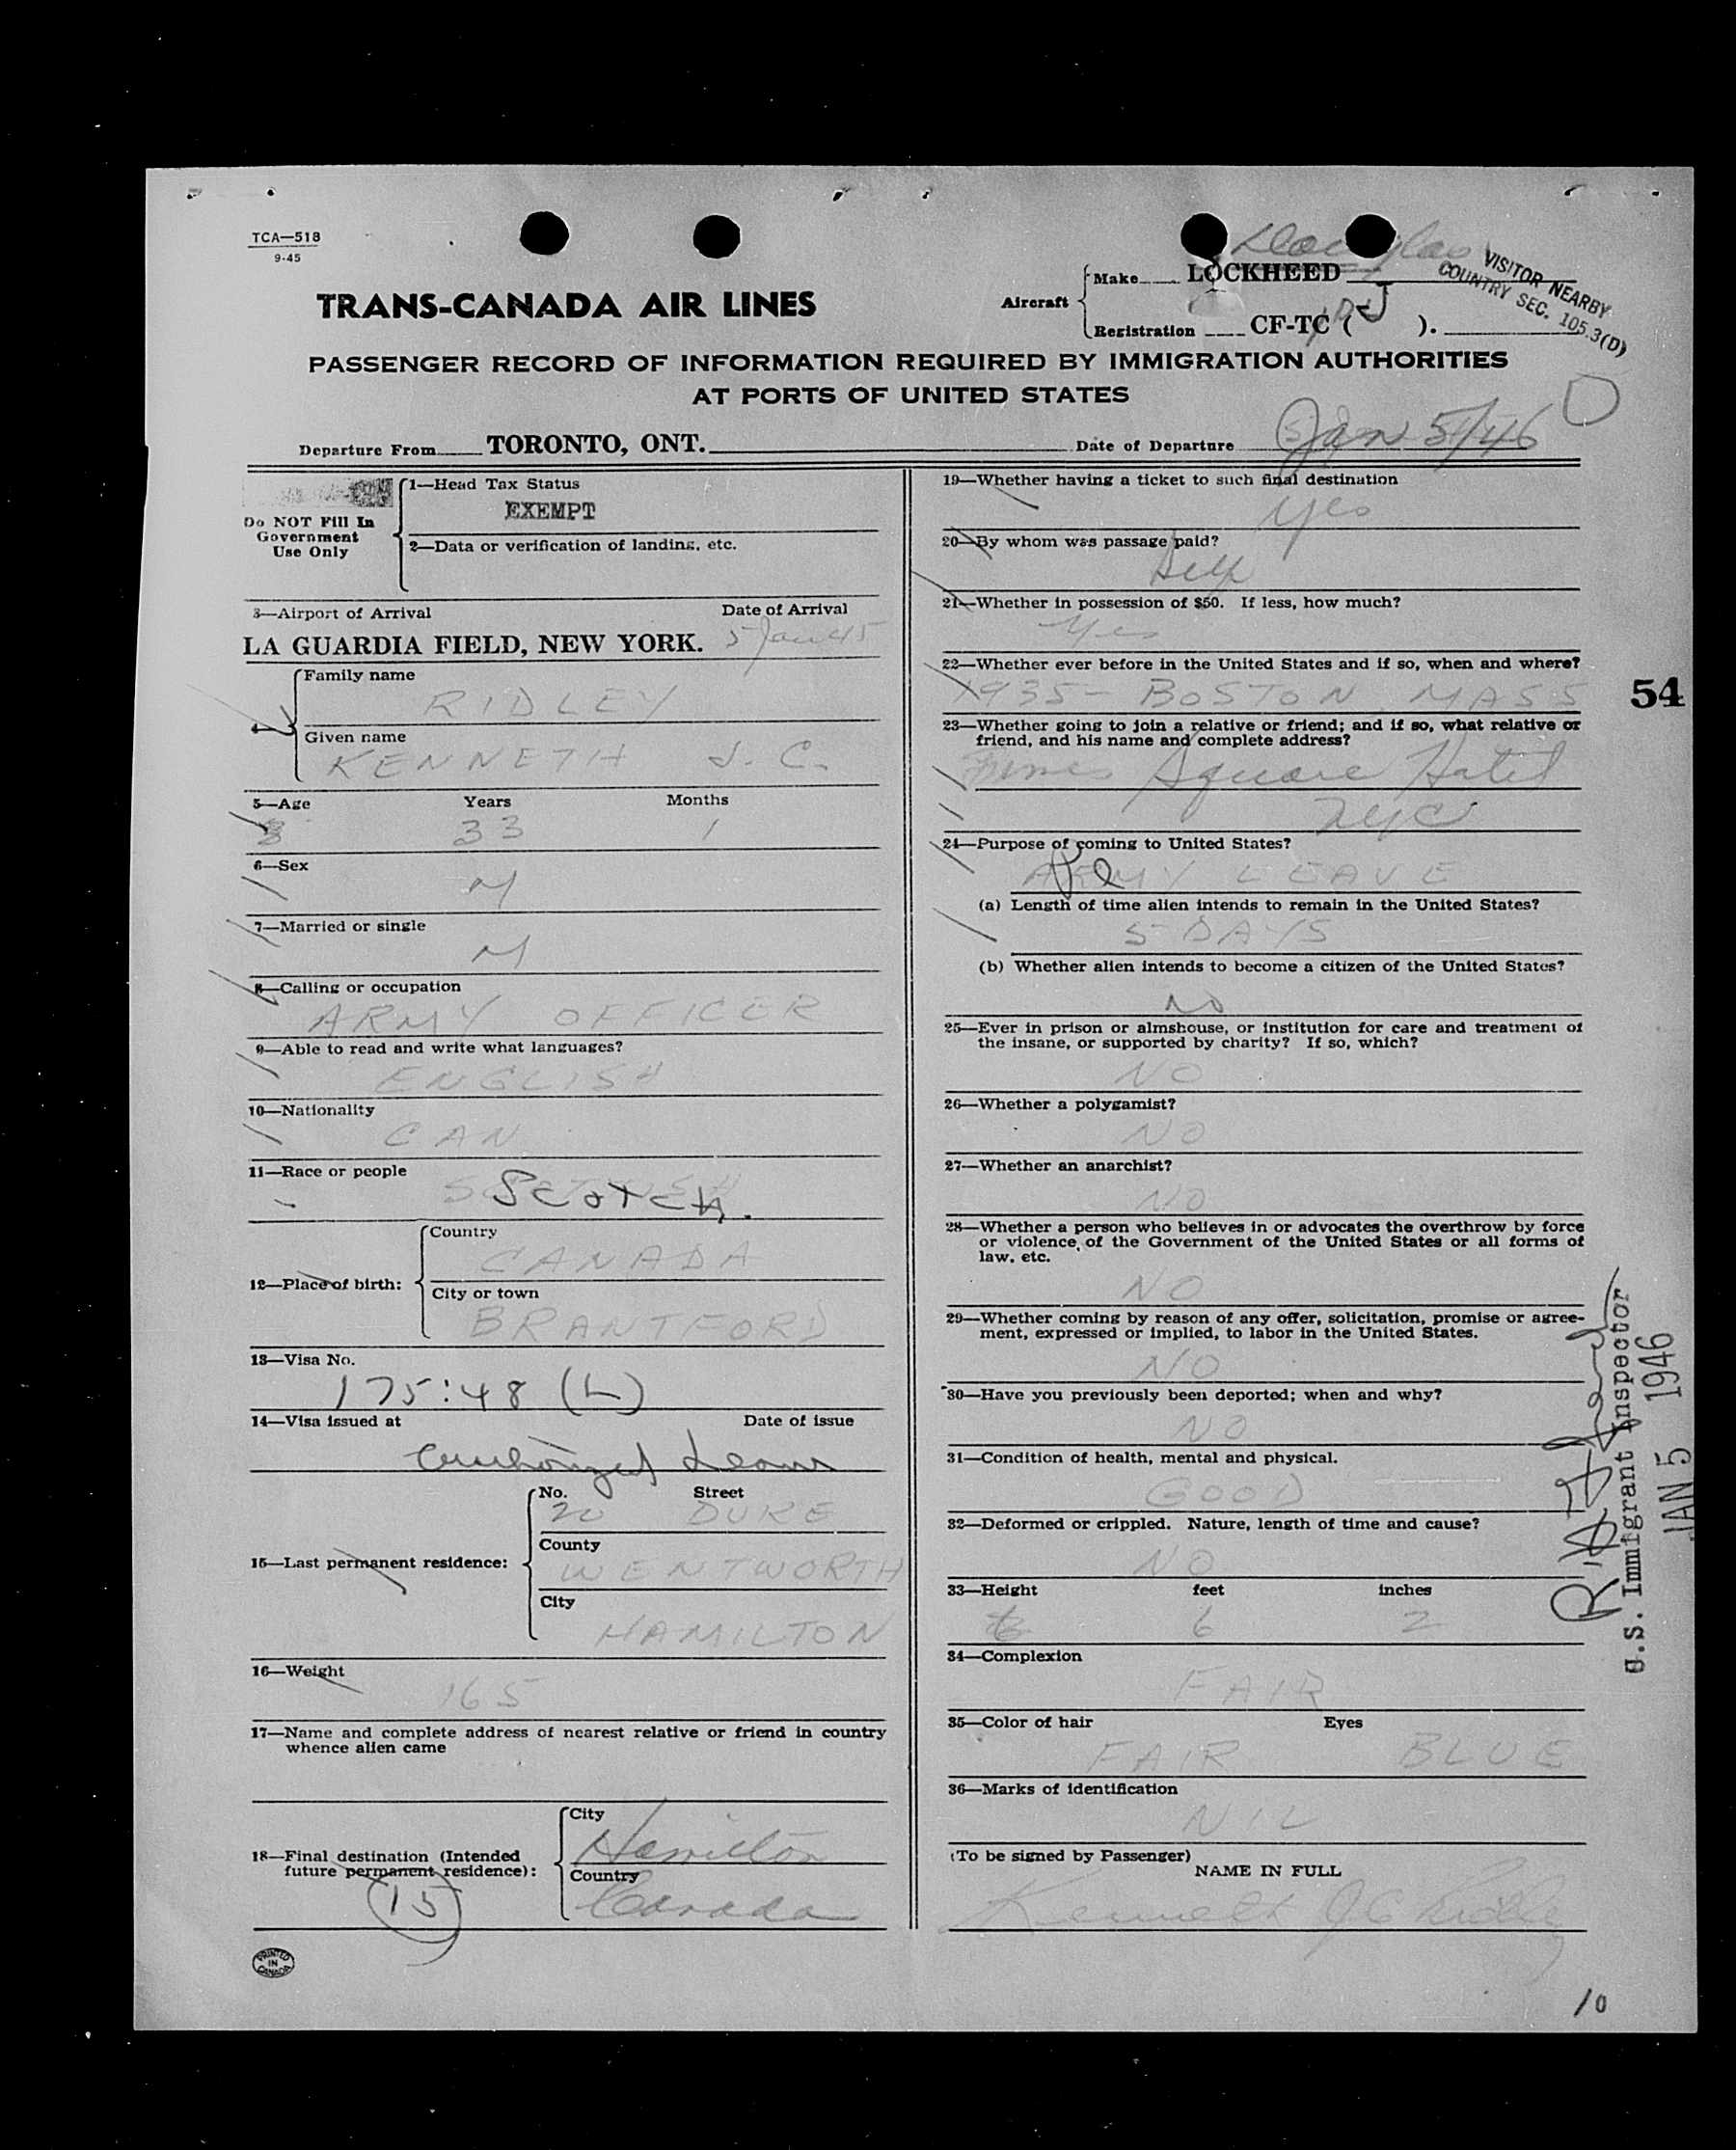 TCA—518
9-45
Douglas
Aircraft
Make LOCKHEED
Registration CF-TC ( ).
VISITOR NEARBY
COUNTRY SEC. 105.3(D)
TRANS-CANADA AIR LINES
PASSENGER RECORD OF INFORMATION REQUIRED BY IMMIGRATION AUTHORITIES
AT PORTS OF UNITED STATES
D
Departure From TORONTO, ONT. Date of Departure Jan 5/46
Do NOT Fill In
Government
Use Only
1—Head Tax Status
EXEMPT
2—Data or verification of landing, etc.
3—Airport of Arrival Date of Arrival
LA GUARDIA FIELD, NEW YORK. 5 Jan 45
4—
Family name
RIDLEY
Given name
KENNETH J. C.
5—Age Years Months
33 1
6—Sex
M
7—Married or single
M
8—Calling or occupation
ARMY OFFICER
9—Able to read and write what languages?
ENGLISH
10—Nationality
CAN
11—Race or people
SCOTCH.
12—Place of birth:
Country
CANADA
City or town
BRANTFORD
13—Visa No.
175:48 (L)
14—Visa issued at Date of issue
15—Last permanent residence:
No. Street
20 DUKE
County
WENTWORTH
City
HAMILTON
16—Weight
165
17—Name and complete address of nearest relative or friend in country
whence alien came
18—Final destination (Intended
future permanent residence):
15
City
Hamilton
Country
Canada
PRINTED
IN
CANADA
19—Whether having a ticket to such final destination
Yes
20—By whom was passage paid?
Self
21—Whether in possession of $50. If less, how much?
Yes
22—Whether ever before in the United States and if so, when and where?
1935 - BOSTON, MASS
23—Whether going to join a relative or friend; and if so, what relative or
friend, and his name and complete address?
Times Square Hotel
NYC
24—Purpose of coming to United States?
ARMY LEAVE
(a) Length of time alien intends to remain in the United States?
5 DAYS
(b) Whether alien intends to become a citizen of the United States?
NO
25—Ever in prison or almshouse, or institution for care and treatment of
the insane, or supported by charity? If so, which?
NO
26—Whether a polygamist?
NO
27—Whether an anarchist?
NO
28—Whether a person who believes in or advocates the overthrow by force
or violence, of the Government of the United States or all forms of
law, etc.
NO
29—Whether coming by reason of any offer, solicitation, promise or agree-
ment, expressed or implied, to labor in the United States.
NO
30—Have you previously been deported; when and why?
NO
31—Condition of health, mental and physical.
GOOD
32—Deformed or crippled. Nature, length of time and cause?
NO
33—Height feet inches
6 2
34—Complexion
FAIR
35—Color of hair Eyes
FAIR BLUE
36—Marks of identification
NIL
(To be signed by Passenger)
NAME IN FULL
Kenneth JC Ridley
54
U.S. Immigrant Inspector
JAN 5 1946
10